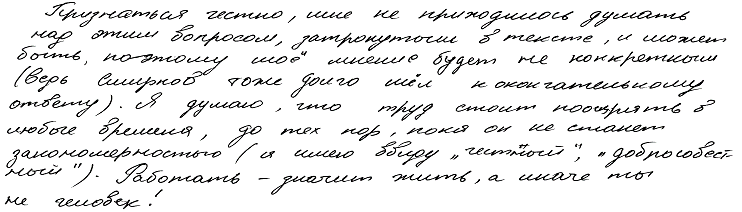 Признаться честно, мне не приходилось думать
над этим вопросом, затронутым в тексте, и может
быть, поэтому моё мнение будет не конкретным
(ведь Смирнов тоже долго шёл к окончательному
ответу). Я думаю, что труд стоит поощрять в
любые времена, до тех пор, пока он не станет
закономерностью (я имею ввиду „честный", „добросовест-
ный"). Работать – значит жить, а иначе ты
не человек!